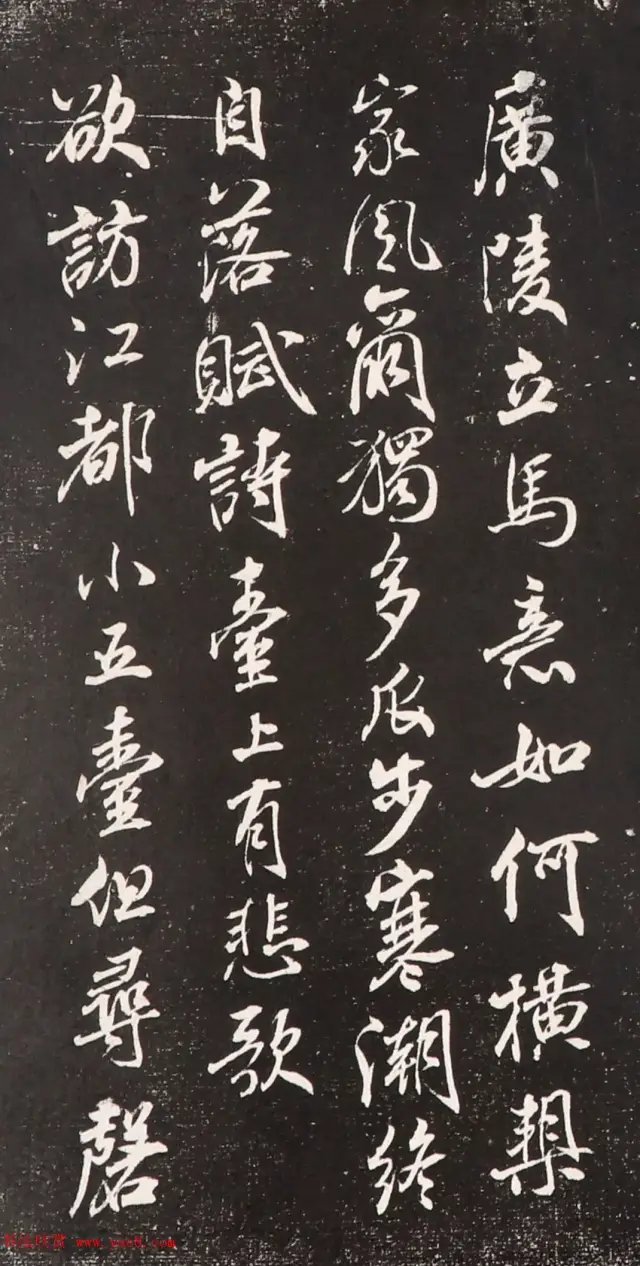 廣陵立馬意如何橫槊
家風爾獨多瓜步寒潮終
自落賦詩臺上有悲歌
欲訪江都小五臺但尋磬
www.yac8.com